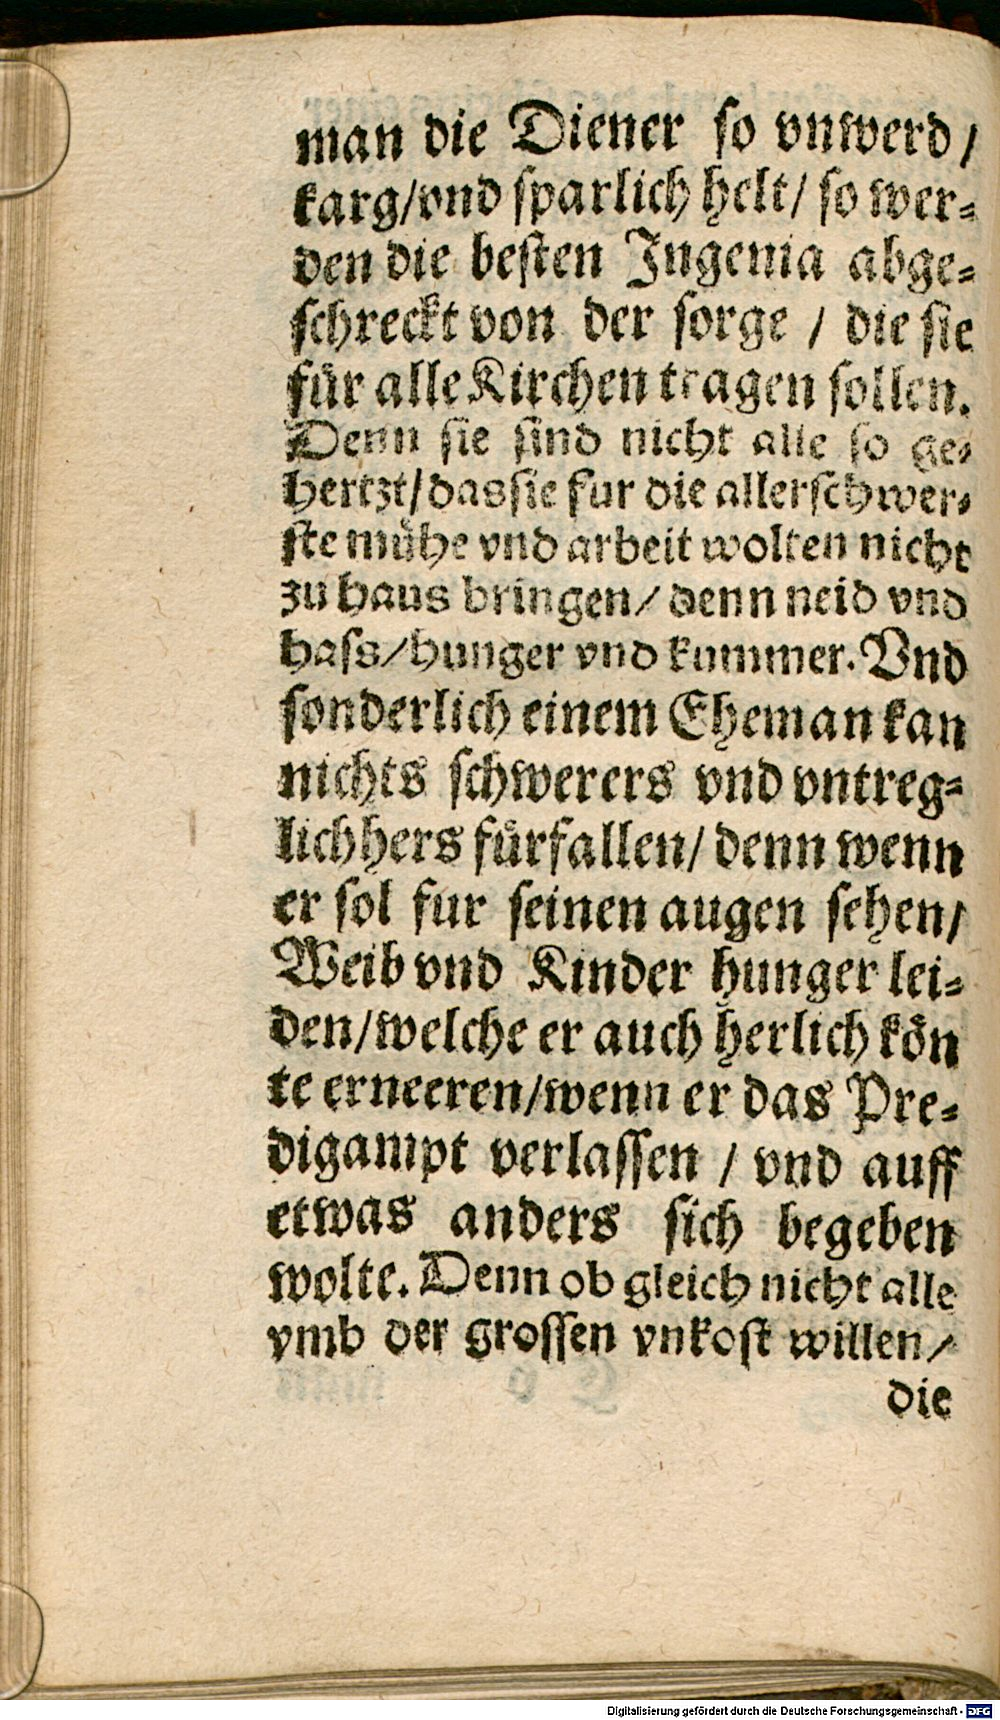 man die Diener so vnwerd/
karg/vnd sparlich helt/ so wer-
den die besten Ingenia abge-
schreckt von der sorge / die sie
für alle Kirchen tragen sollen.
Denn sie sind nicht alle so ge-
hertzt/das sie fur die allerschwer-
ste mühe vnd arbeit wolten nicht
zu haus bringen/ denn neid vnd
hass/hunger vnd kummer. Vnd
sonderlich einem Eheman kan
nichts schwerers vnd vntreg-
lichhers fürfallen/ denn wenn
er sol fur seinen augen sehen/
Weib vnd Kinder hunger lei-
den/welche er auch herlich kön
te erneeren/wenn er das Pre-
digampt verlassen / vnd auff
etwas anders sich begeben
wolte. Denn ob gleich nicht alle
vmb der grossen vnkost willen/
die
Digitalisierung gefördert durch die Deutsche Forschungsgemeinschaft - DFG